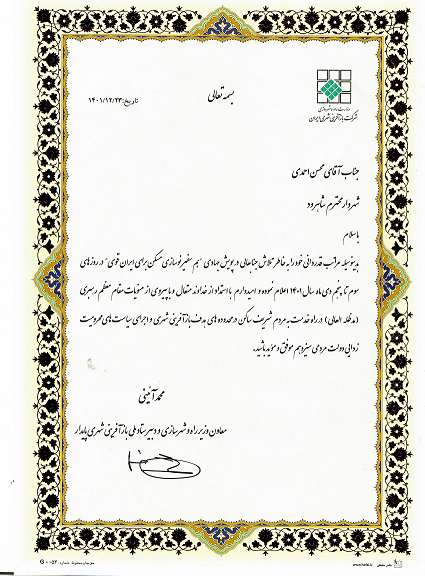 بسمه تعالی
تاریخ: ۱۴۰۱/۱۲/۲۳
وزارت راه و شهرسازی
شرکت بازآفرینی شهری ایران
جناب آقای محسن احمدی
شهردار محترم شاهرود
با سلام
بدینوسیله مراتب قدردانی خود را به خاطر تلاش جنابعالی در پویش جهادی "هم سفیر نوسازی مسکن برای ایران قوی" در روزهای
سوم تا پنجم دی ماه سال ۱۴۰۱ اعلام نموده و امیدوارم با استمداد از خداوند متعال و با پیروی از منویات مقام معظم رهبری
(مدظله العالی) در راه خدمت به مردم شریف ساکن در محدوده های هدف بازآفرینی شهری و اجرای سیاست های محرومیت
زدایی دولت مردمی سیزدهم موفق و مؤید باشید.
محمد آئینی
معاون وزیر راه و شهرسازی و دبیر ستاد ملی بازآفرینی شهری پایدار